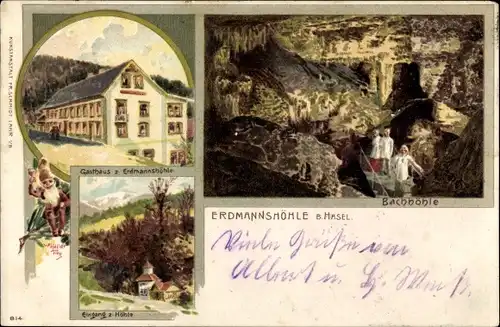 KUNSTANSTALT FR. SCHMIDT LAHR
Gasthaus z. Erdmannshöhle
Bachhöhle
ERDMANNSHÖHLE B. HASEL.
Eingang z. Höhle
Viele Grüße von
Albert u.
814